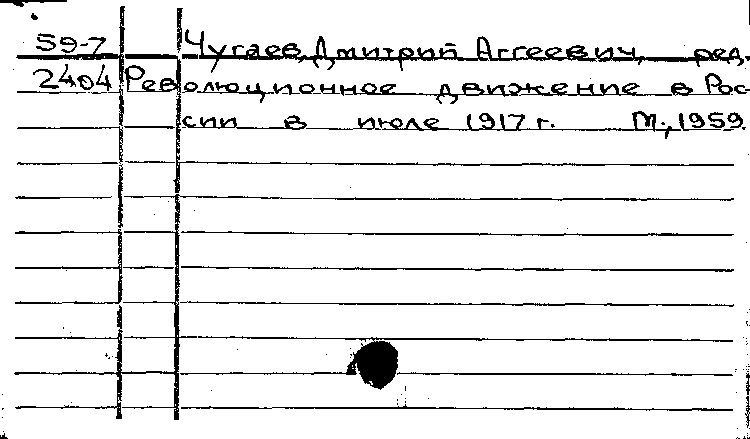 59-7 Чугаев, Дмитрий Аггеевич, ред.
2404 Революционное движение в Рос-
сии в июле 1917 г. М., 1959.